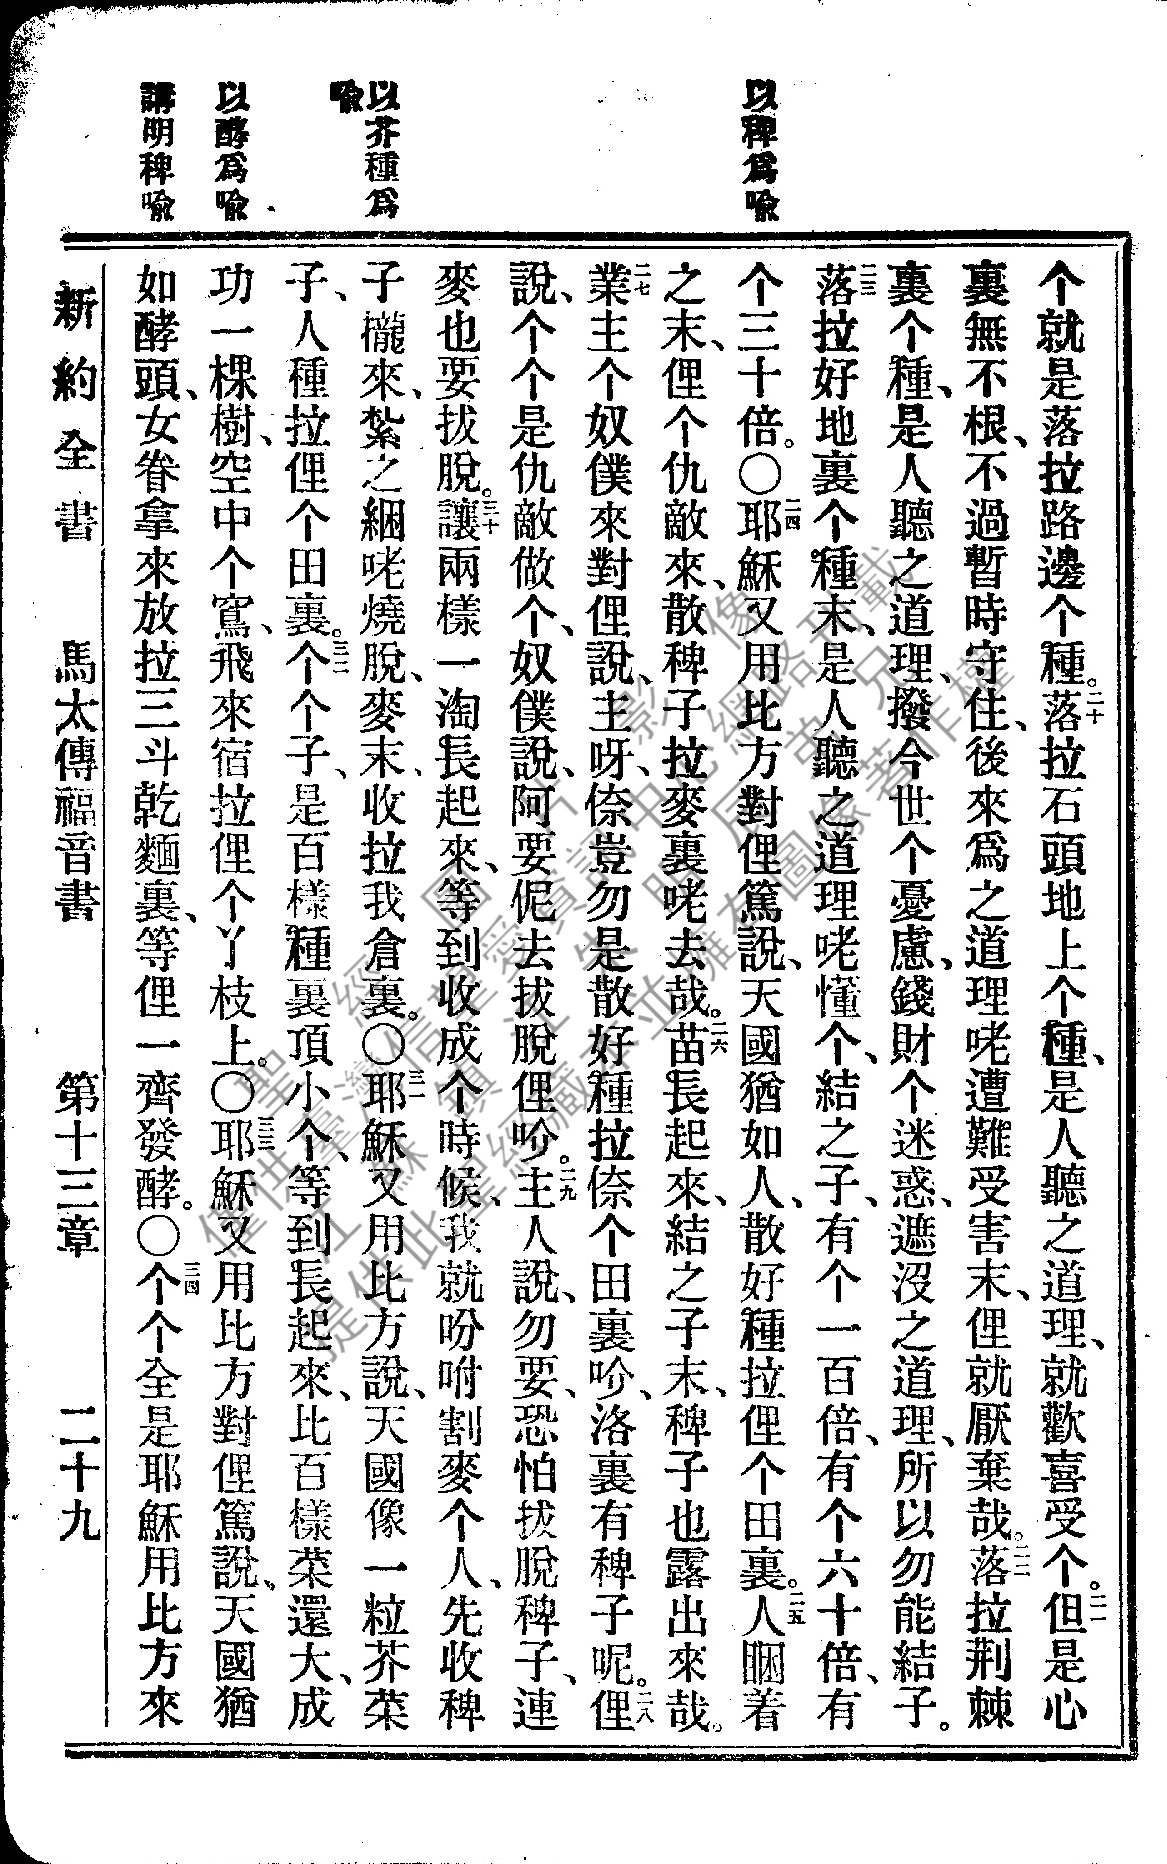 以稗爲喩
以芥種爲
喩
以酵爲喩
講明稗喩
个就是落拉路邊个種。二十落拉石頭地上个種、是人聽之道理、就歡喜受个。二一但是心
裏無不根、不過暫時守住、後來爲之道理咾遭難受害末、俚就厭棄哉。二二落拉荆棘
裏个種、是人聽之道理、撥今世个憂慮、錢財个迷惑、遮沒之道理、所以勿能結子。
二三落拉好地裏个種末、是人聽之道理咾懂个、結之子、有个一百倍、有个六十倍、有
个三十倍。〇二四耶穌又用比方對俚篤說、天國猶如人、散好種拉俚个田裏。二五人睏着
之末、俚个仇敵來、散稗子拉麥裏咾去哉。二六苗長起來、結之子末、稗子也露出來哉。
二七業主个奴僕來對俚說、主呀、倷豈勿是散好種拉倷个田裏吤、洛裏有稗子呢。二八俚
說、个个是仇敵做个、奴僕說、阿要伲去拔脫俚吤。二九主人說、勿要、恐怕拔脫稗子、連
麥也要拔脫。三十讓兩樣一淘長起來、等到收成个時候、我就吩咐割麥个人、先收稗
子櫳來、紮之綑咾燒脫、麥末、收拉我倉裏。〇三一耶穌又用比方說、天國像一粒芥菜
子、人種拉俚个田裏。三二个个子、是百樣種裏頂小个、等到長起來、比百樣菜還大、成
功一棵樹、空中个鳥、飛來宿拉俚个丫枝上。〇三三耶穌又用比方對俚篤說、天國猶
如酵頭、女眷拿來放拉三斗乾麵裏、等俚一齊發酵。〇三四个个全是耶穌用比方來
新約全書 馬太傳福音書 第十三章 二十九